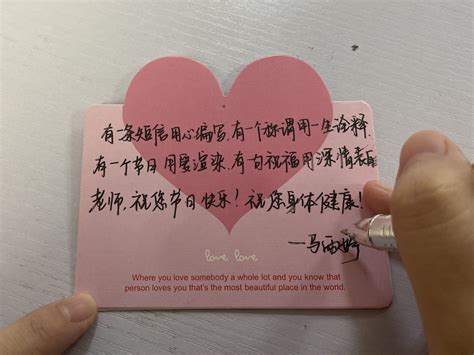 有一条短信用心编写,有一个称谓用一生诠释,
有一个节日用爱渲染,有句祝福用深情表
老师,祝您节日快乐!祝您身体健康!
—马雨婷
love love
Where you love somebody a whole lot and you know that
person loves you that's the most beautiful place in the world.